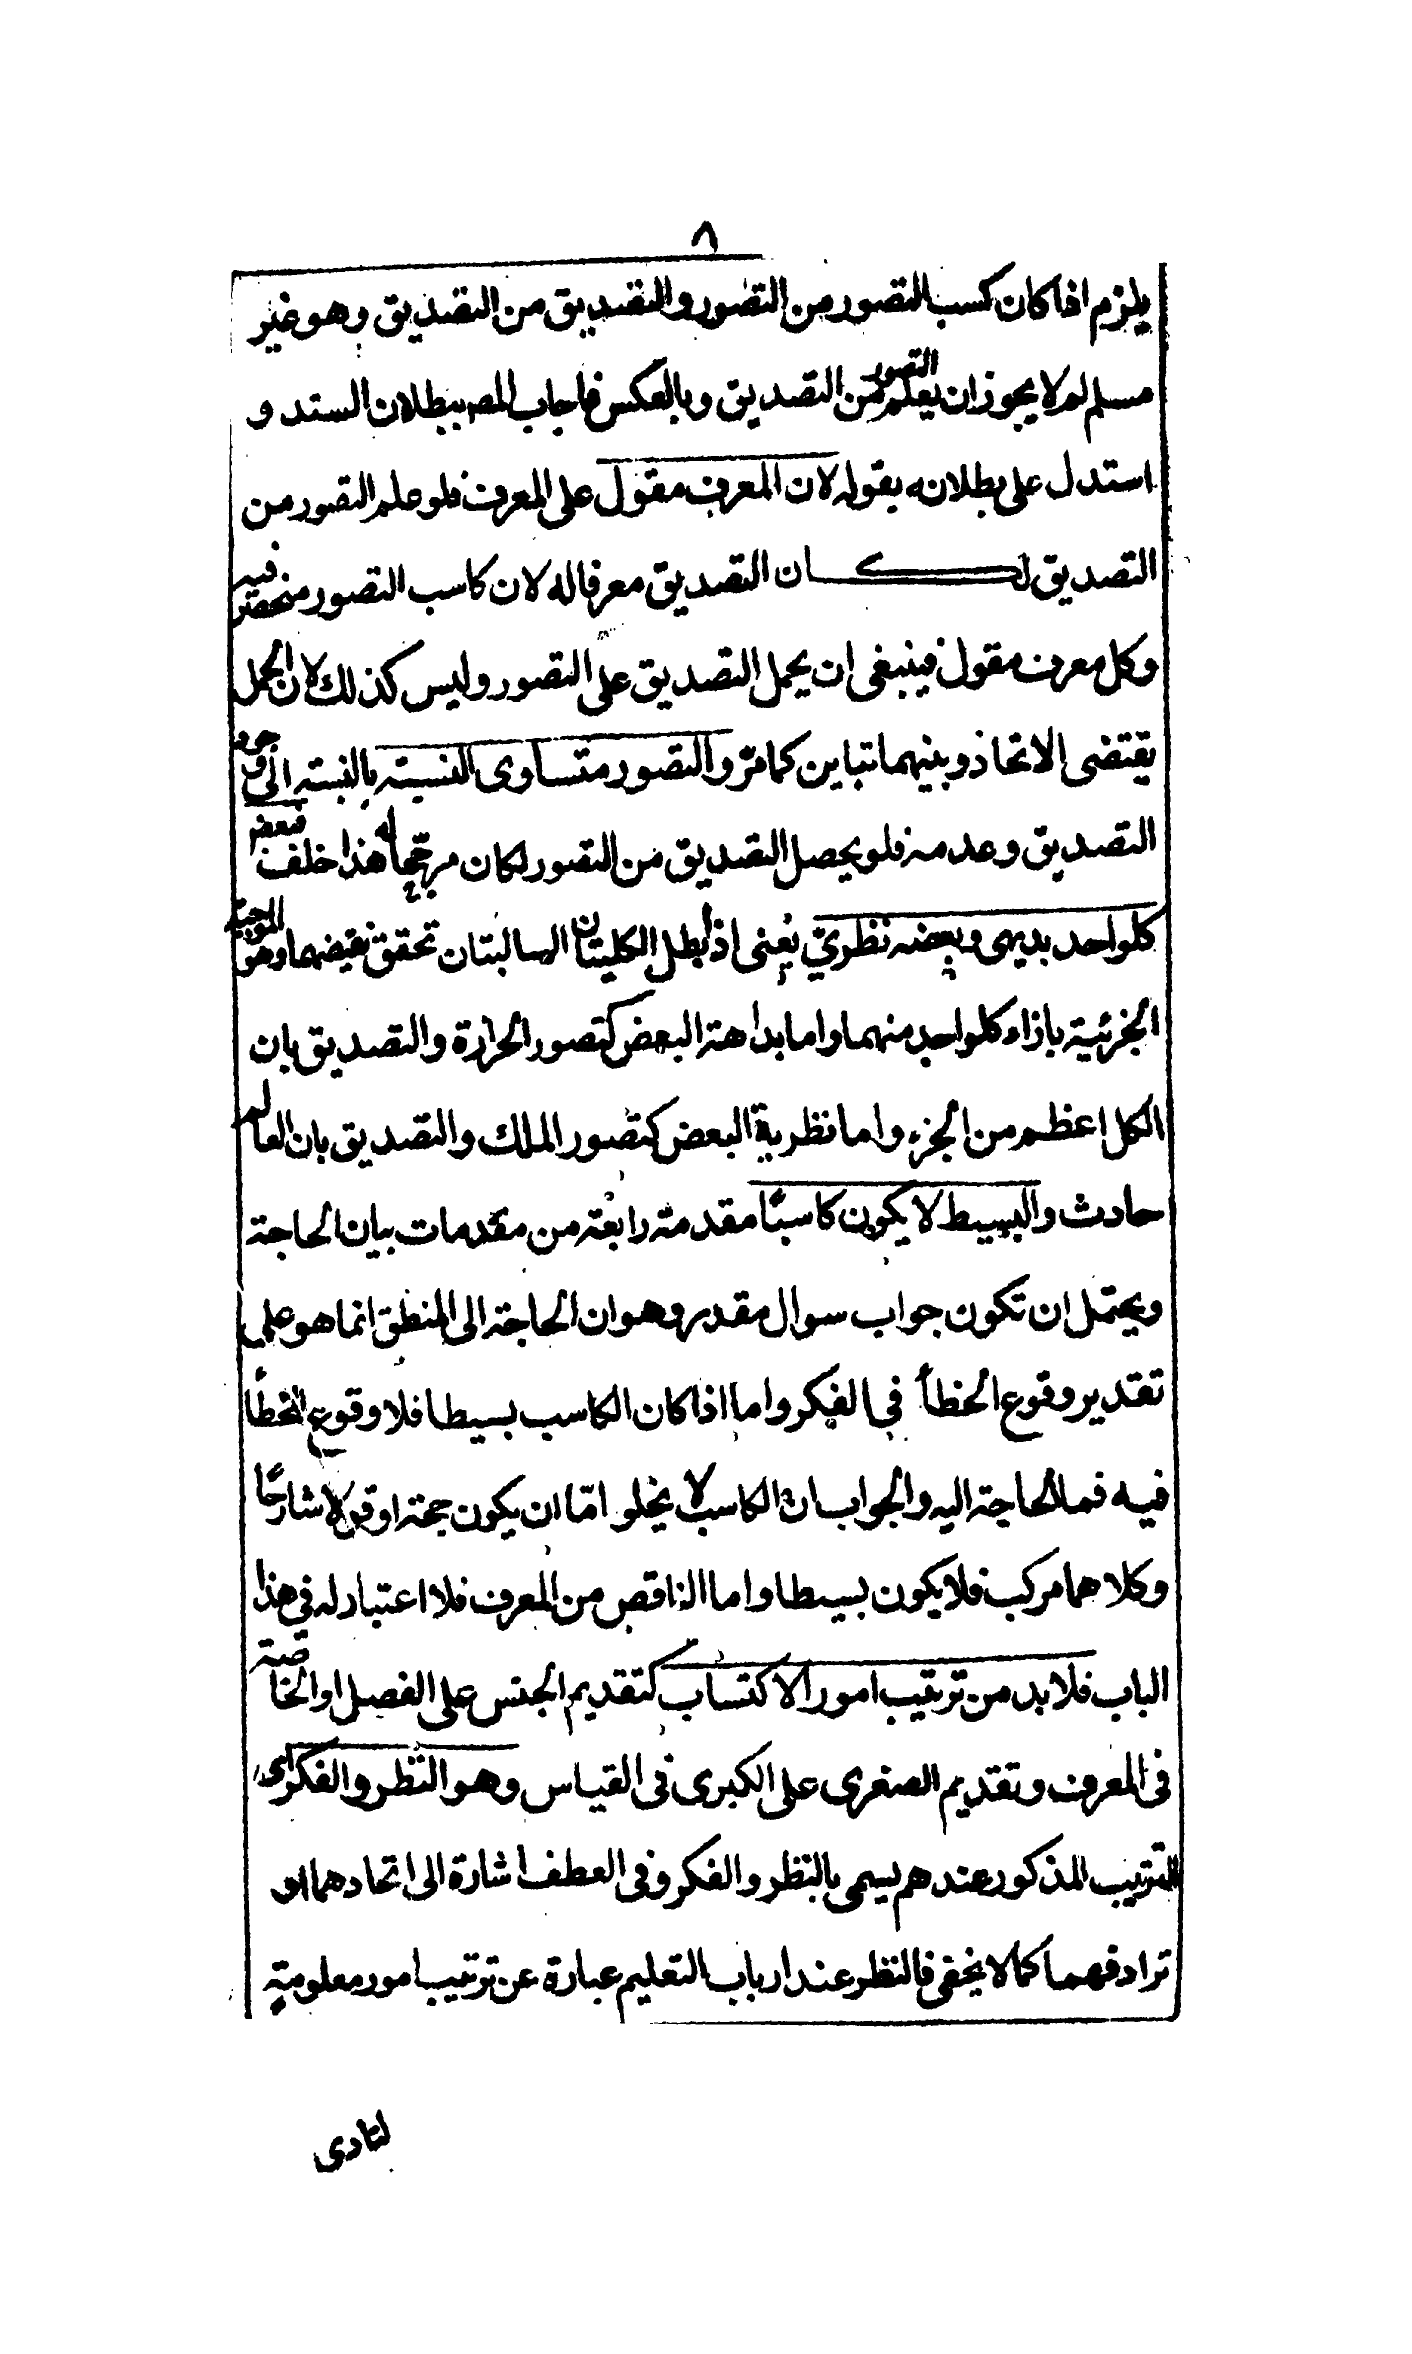 ٨
يلزم اذا كان كسب التصور من التصور والتصديق من التصديق وهو غير
مسلم لم لا يجوز ان يعلم التصور من التصديق وبالعكس فاجاب المصـ ببطلان السند و
استدل على بطلانه بقوله لان المعرف مقول على المعرف فلو علم التصور من
التصديق لكان التصديق معرفا له لان كاسب التصور منحصر فيه
وكل معرف مقول فينبغى ان يحمل التصديق على التصور وليس كذلك لان الحمل
يقتضى الاتحاد وبينهما تباين كما مرّ والتصور متساوى النسبته بالنبسته الى وجود
التصديق وعدمه فلو يحصل التصديق من التصور لكان مرجّحا له هذا خلف فبعض
كلواحد بديهى وبعضه نظريّ يعنى اذ ابطل الكليتان السالبتان تحقق نقيضهما وهو الموجبة
الجزئية بازاء كلواحد منهما واما بداهته البعض كتصور الحرارة والتصديق بان
الكل اعظم من الجزء واما نظرية البعض كتصور الملك والتصديق بان العالم
حادث والبسيط لا يكون كاسبًا مقدمته رابعته من مقدمات بيان الحاجته
ويحتمل ان تكون جواب سوال مقدر وهو ان الحاجته الى المنطق انما هو على
تقدير وقوع الخطأ فى الفكر واما اذا كان الكاسب بسيطا فلا وقوع الخطأ
فيه فما الحاجته اليه والجواب ان الكاسب لا يخلو امّا ان يكون حجته او قولا شارحًا
وكلاهما مركب فلا يكون بسيطا واما الناقص من المعرف فلا اعتبار له فى هذا
الباب فلا بد من ترتيب امور الاكتساب كتقديم الجنس على الفصل او الخاصته
فى المعرف وتقديم الصغرى على الكبرى فى القياس وهو النظر والفكر اى
الترتيب المذكور عندهم يسمى بالنظر والفكر وفى العطف اشارة الى اتحادهما او
ترادفهما كما لا يخفى فالنظر عند ارباب التعليم عبارة عن ترتيب امور معلومته
لتادى